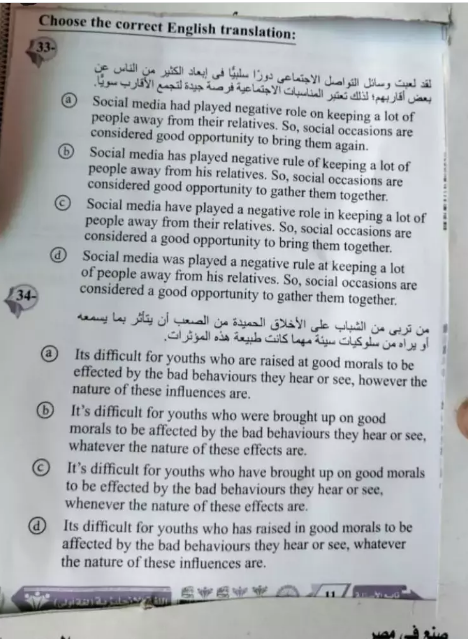 Choose the correct English translation:
33-
لقد لعبت وسائل التواصل الاجتماعى دورًا سلبيًّا فى إبعاد الكثير من الناس عن
بعض أقاربهم؛ لذلك تعتبر المناسبات الاجتماعية فرصة جيدة لتجمع الأقارب سويًّا.
a Social media had played negative role on keeping a lot of
people away from their relatives. So, social occasions are
considered good opportunity to bring them again.
b Social media has played negative rule of keeping a lot of
people away from his relatives. So, social occasions are
considered good opportunity to gather them together.
c Social media have played a negative role in keeping a lot of
people away from their relatives. So, social occasions are
considered a good opportunity to bring them together.
d Social media was played a negative rule at keeping a lot
of people away from his relatives. So, social occasions are
considered a good opportunity to gather them together.
34-
من تربى من الشباب على الأخلاق الحميدة من الصعب أن يتأثر بما يسمعه
أو يراه من سلوكيات سيئة مهما كانت طبيعة هذه المؤثرات.
a Its difficult for youths who are raised at good morals to be
effected by the bad behaviours they hear or see, however the
nature of these influences are.
b It's difficult for youths who were brought up on good
morals to be affected by the bad behaviours they hear or see,
whatever the nature of these effects are.
c It's difficult for youths who have brought up on good morals
to be effected by the bad behaviours they hear or see,
whenever the nature of these effects are.
d Its difficult for youths who has raised in good morals to be
affected by the bad behaviours they hear or see, whatever
the nature of these influences are.
11
صنع فى مصر